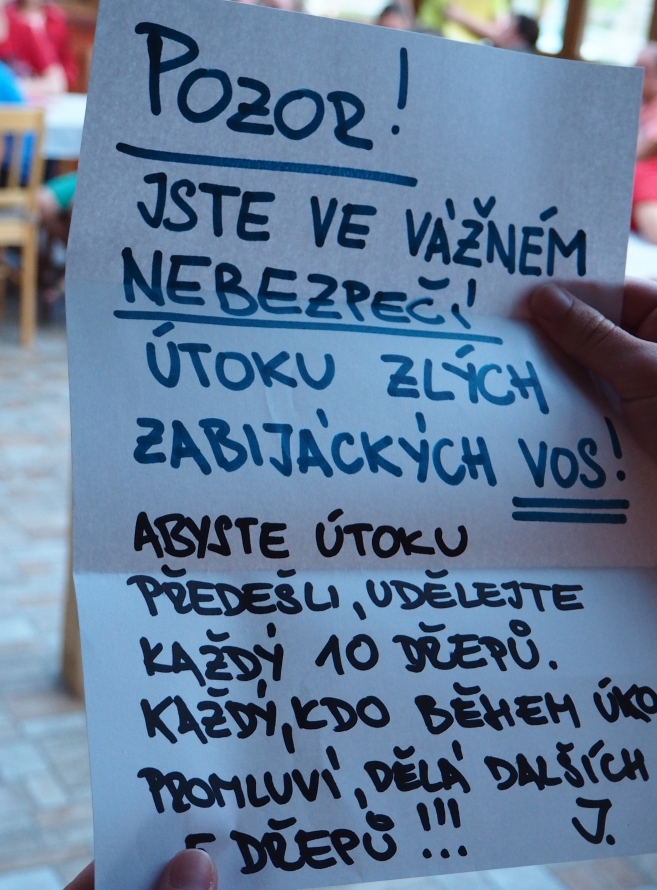 POZOR!
JSTE VE VÁŽNÉM
NEBEZPEČÍ
ÚTOKU ZLÝCH
ZABIJÁCKÝCH VOS!
ABYSTE ÚTOKU
PŘEDEŠLI, UDĚLEJTE
KAŽDÝ 10 DŘEPŮ.
KAŽDÝ, KDO BĚHEM ÚKO
PROMLUVÍ, DĚLÁ DALŠÍCH
DŘEPŮ!!! J.